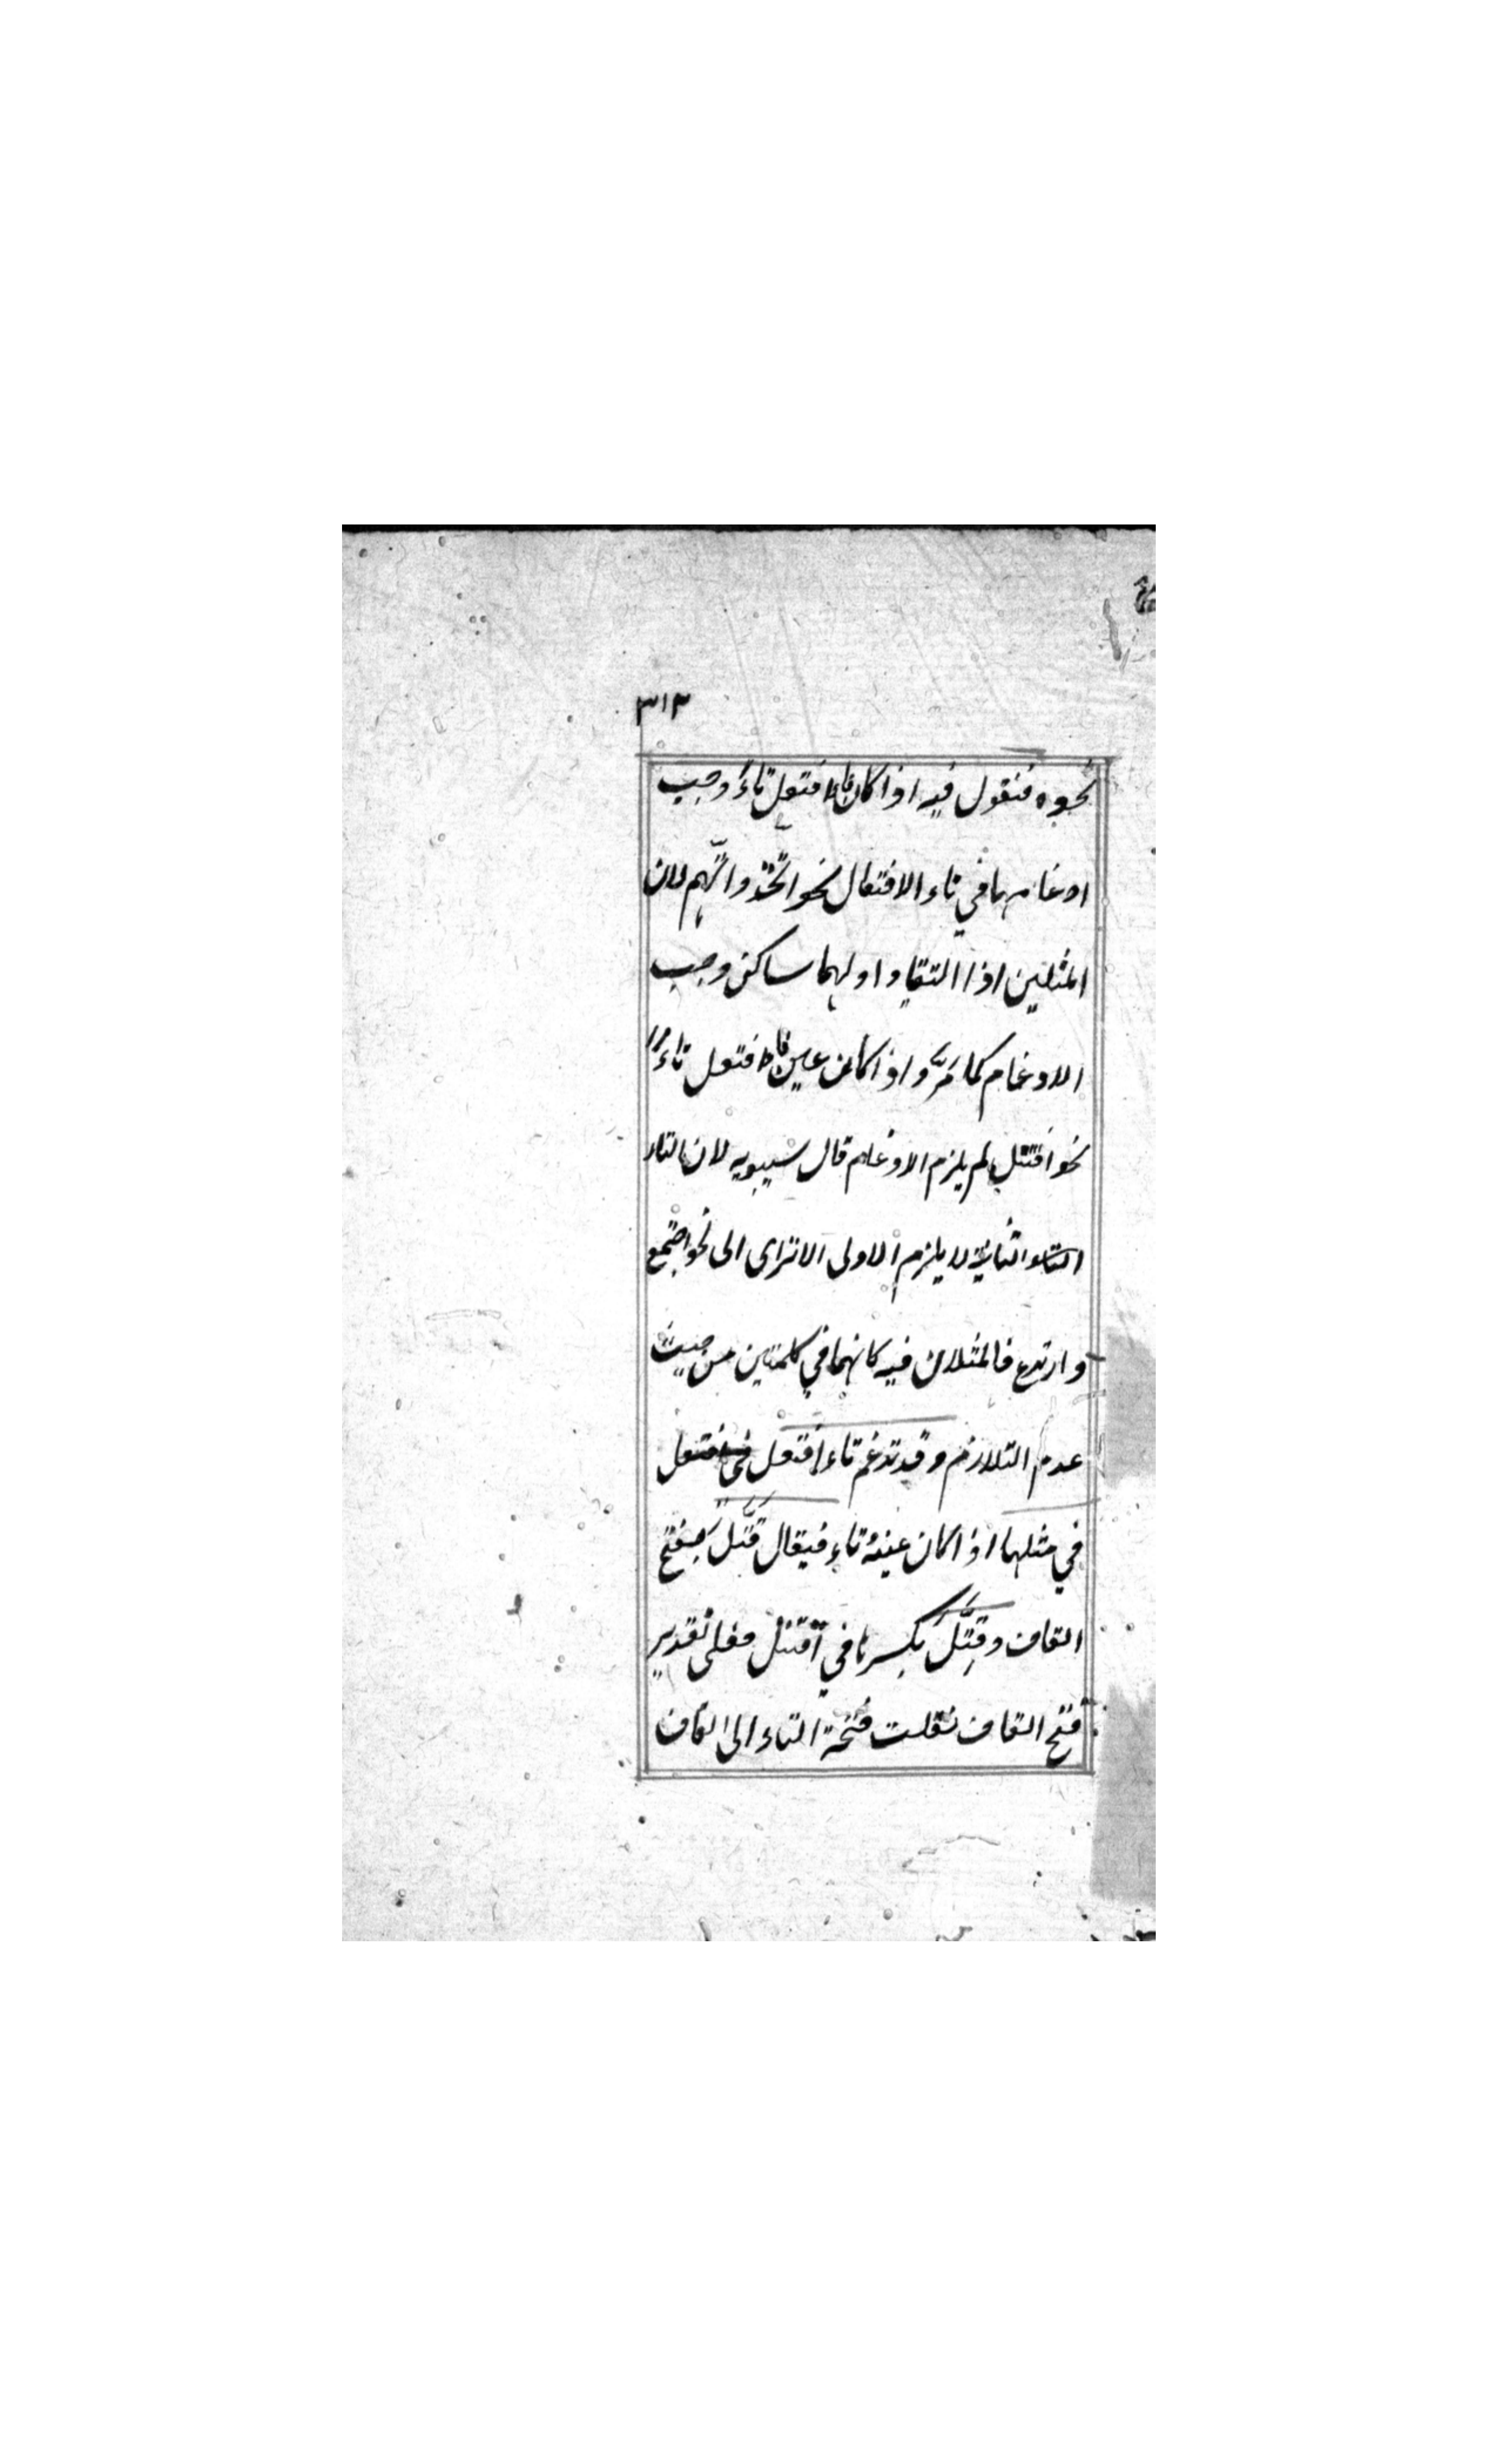 ٣١٣
نحوه فنقول فيه اذا كان فاء افتعل تاءً وجب
ادغامها في تاء الافتعال نحو اتّخذ واتّهم لان
المثلين اذا التقيا واولهما ساكن وجب
الادغام كما مَرَّ واذا كان عين افتعل تاءً
نحو اقتتل لم يلزم الادغام قال سيبويه لان التاء
التاء الثانية لا يلزم الاولى الا ترى الى نحو اجتمع
وارتدع فالمثلان فيه كانهما في كلمتين من حيث
عدم التلازم وقد تدغم تاء افتعل في افتعل
في مثلها اذا كان عينه تاء فيقال قَتَّلَ بفتح
القاف وقِتَّلَ بكسرها في اقتتل فعلى تقدير
فتح القاف نقلت فتحة التاء الى القاف